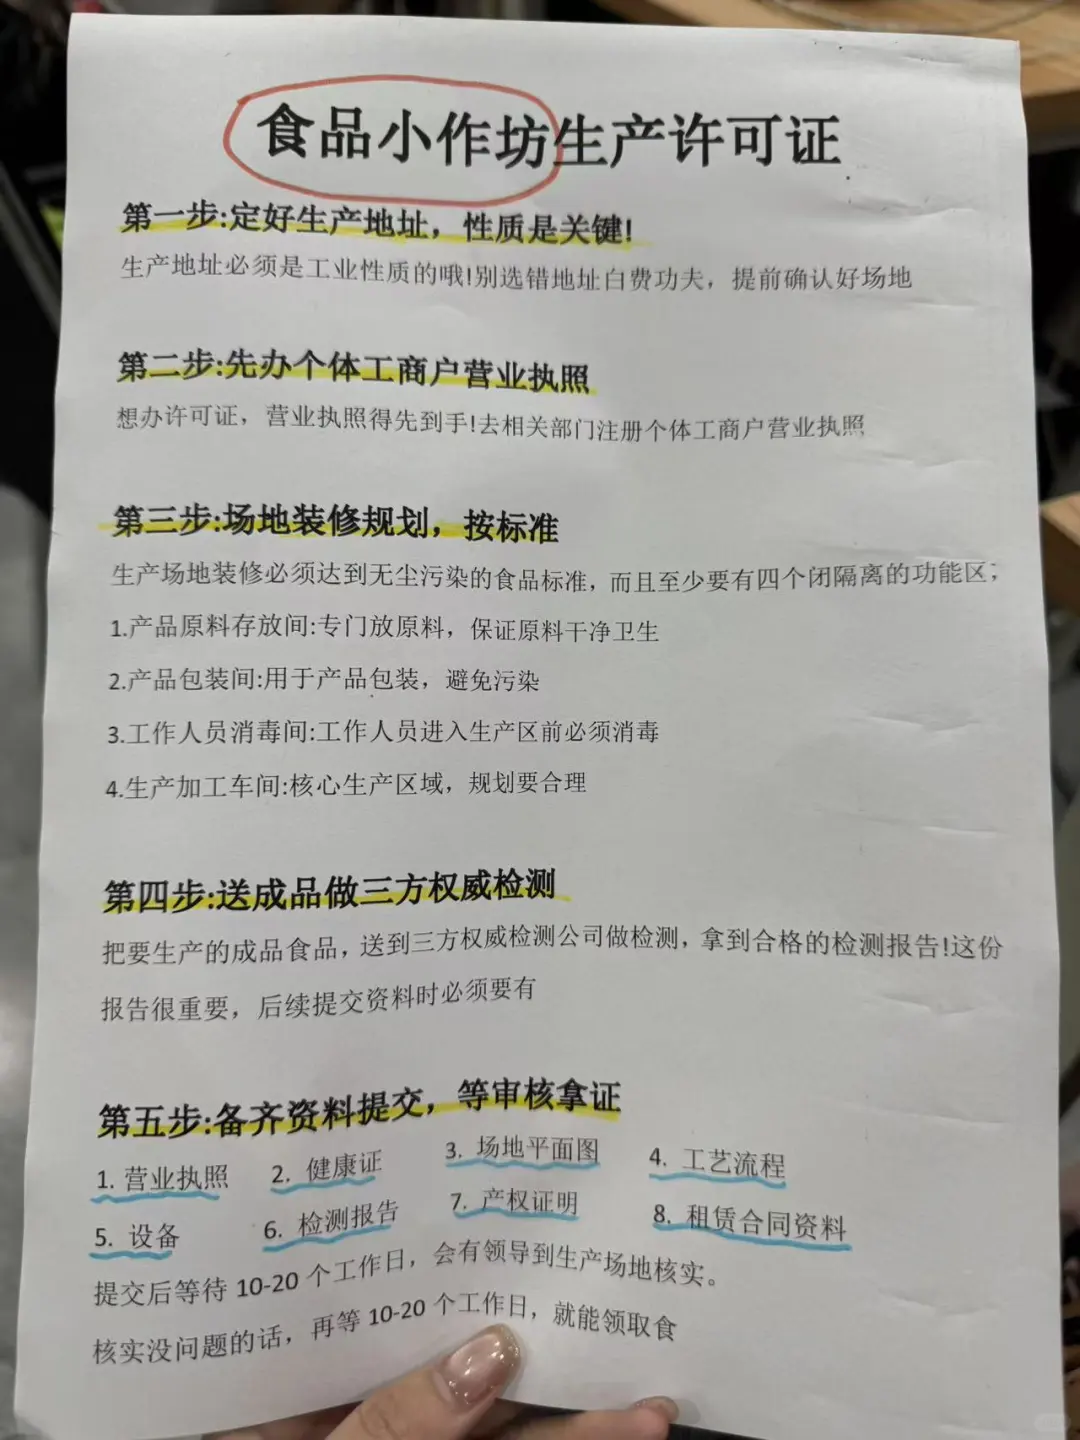 食品小作坊生产许可证
第一步:定好生产地址，性质是关键!
生产地址必须是工业性质的哦!别选错地址白费功夫，提前确认好场地
第二步:先办个体工商户营业执照
想办许可证，营业执照得先到手!去相关部门注册个体工商户营业执照
第三步:场地装修规划，按标准
生产场地装修必须达到无尘污染的食品标准，而且至少要有四个闭隔离的功能区；
1.产品原料存放间:专门放原料，保证原料干净卫生
2.产品包装间:用于产品包装，避免污染
3.工作人员消毒间:工作人员进入生产区前必须消毒
4.生产加工车间:核心生产区域，规划要合理
第四步:送成品做三方权威检测
把要生产的成品食品，送到三方权威检测公司做检测，拿到合格的检测报告!这份
报告很重要，后续提交资料时必须要有
第五步:备齐资料提交，等审核拿证
1. 营业执照 2. 健康证 3. 场地平面图 4. 工艺流程
5. 设备 6. 检测报告 7. 产权证明 8. 租赁合同资料
提交后等待 10-20 个工作日，会有领导到生产场地核实。
核实没问题的话，再等 10-20 个工作日，就能领取食